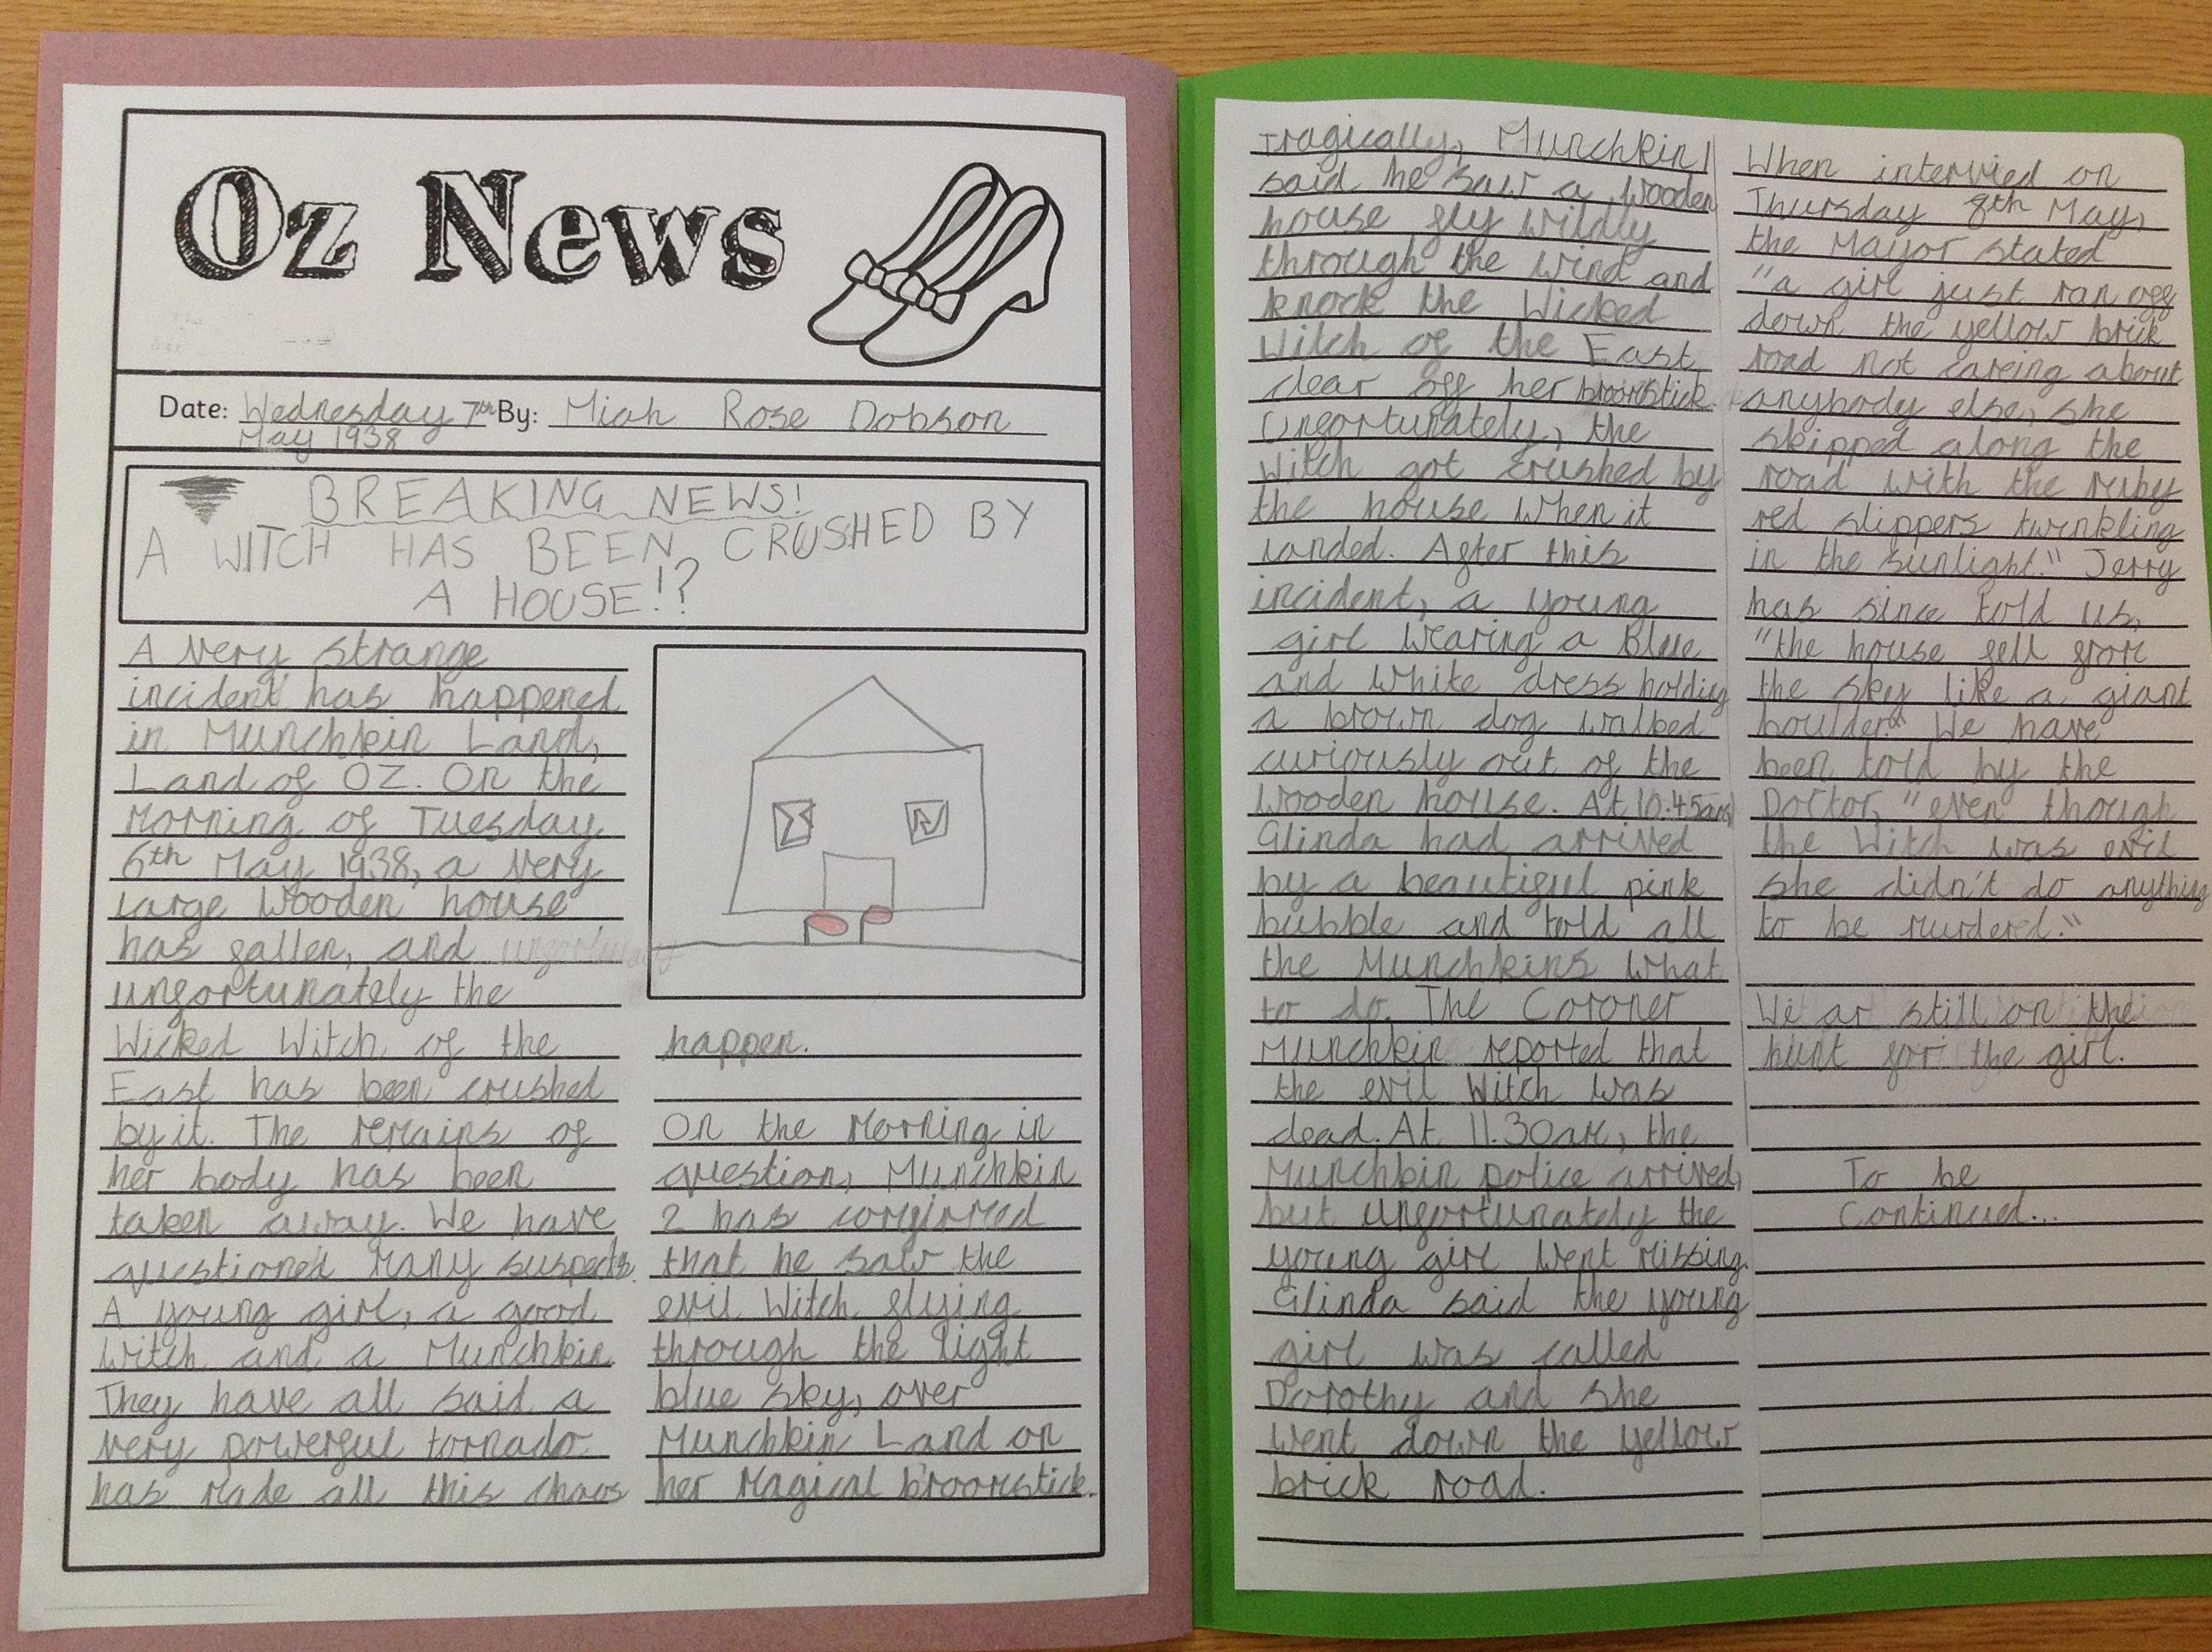 Oz News
Date: Wednesday 7th By: Miah Rose Dobson
May 1938
BREAKING NEWS!
A WITCH HAS BEEN CRUSHED BY
A HOUSE!?
A very strange
incident has happened
in Munchkin Land,
Land of OZ. On the
Morning of Tuesday
6th May 1938, a very
large wooden house
has fallen, and
unfortunately the
Wicked Witch of the
East has been crushed
by it. The remains of
her body has been
taken away. We have
questioned many suspects.
A young girl, a good
Witch and a Munchkin.
They have all said a
very powerful tornado
has made all this chaos
happen.
On the Morning in
question, Munchkin
2 has confirmed
that he saw the
evil Witch flying
through the light
blue sky, over
Munchkin Land on
her Magical Broomstick.
Tragically, Munchkin 1
said he saw a wooden
house fly wildly
through the wind and
knock the Wicked
Witch of the East
clear off her broomstick.
Unfortunately, the
Witch got crushed by
the house when it
landed. After this
incident, a young
girl wearing a Blue
and white dress holding
a brown dog walked
curiously out of the
wooden house. At 10.45am
Glinda had arrived
by a beautiful pink
bubble and told all
the Munchkins what
to do. The Coroner
Munchkin reported that
the evil Witch was
dead. At 11.30am, the
Munchkin police arrived,
but unfortunately the
young girl went missing.
Glinda said the young
girl was called
Dorothy and she
went down the yellow
brick road.
When intervied on
Thursday 8th May,
the Mayor stated
"a girl just ran off
down the yellow brick
road not careing about
anybody else, she
skipped along the
road with the ruby
red slippers twinkling
in the sunlight." Jerry
has since told us,
"the house fell from
the sky like a giant
boulder." We have
been told by the
Doctor, "even though
the Witch was evil
she didn't do anything
to be murdered."
We ar still on the
hunt for the girl.
To be
Continued...